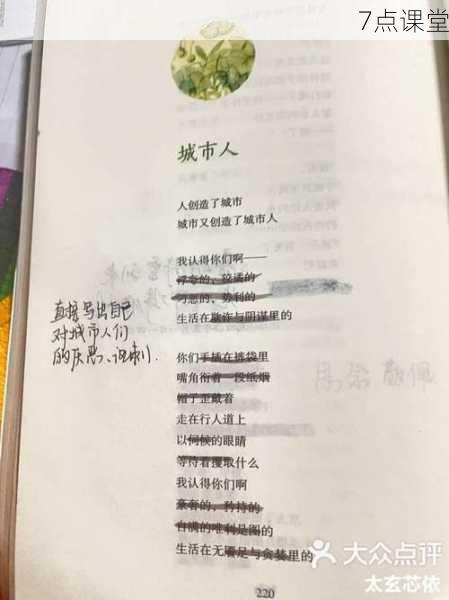 7点课堂
城市人
人创造了城市
城市又创造了城市人
我认得你们啊——
浮夸的、狡谲的
刁恶的、势利的
生活在欺诈与阴谋里的
直接写出自己
对城市人们
的厌恶、讽刺.
你们手插在裤袋里
嘴角衔着一段纸烟
帽子歪戴着
走在行人道上
以伺候的眼睛
等待着攫取什么
我认得你们啊
豪奢的、矜持的
自满的唯利是图的
生活在无餍足与贪婪里的
220
大众点评
太玄芯依